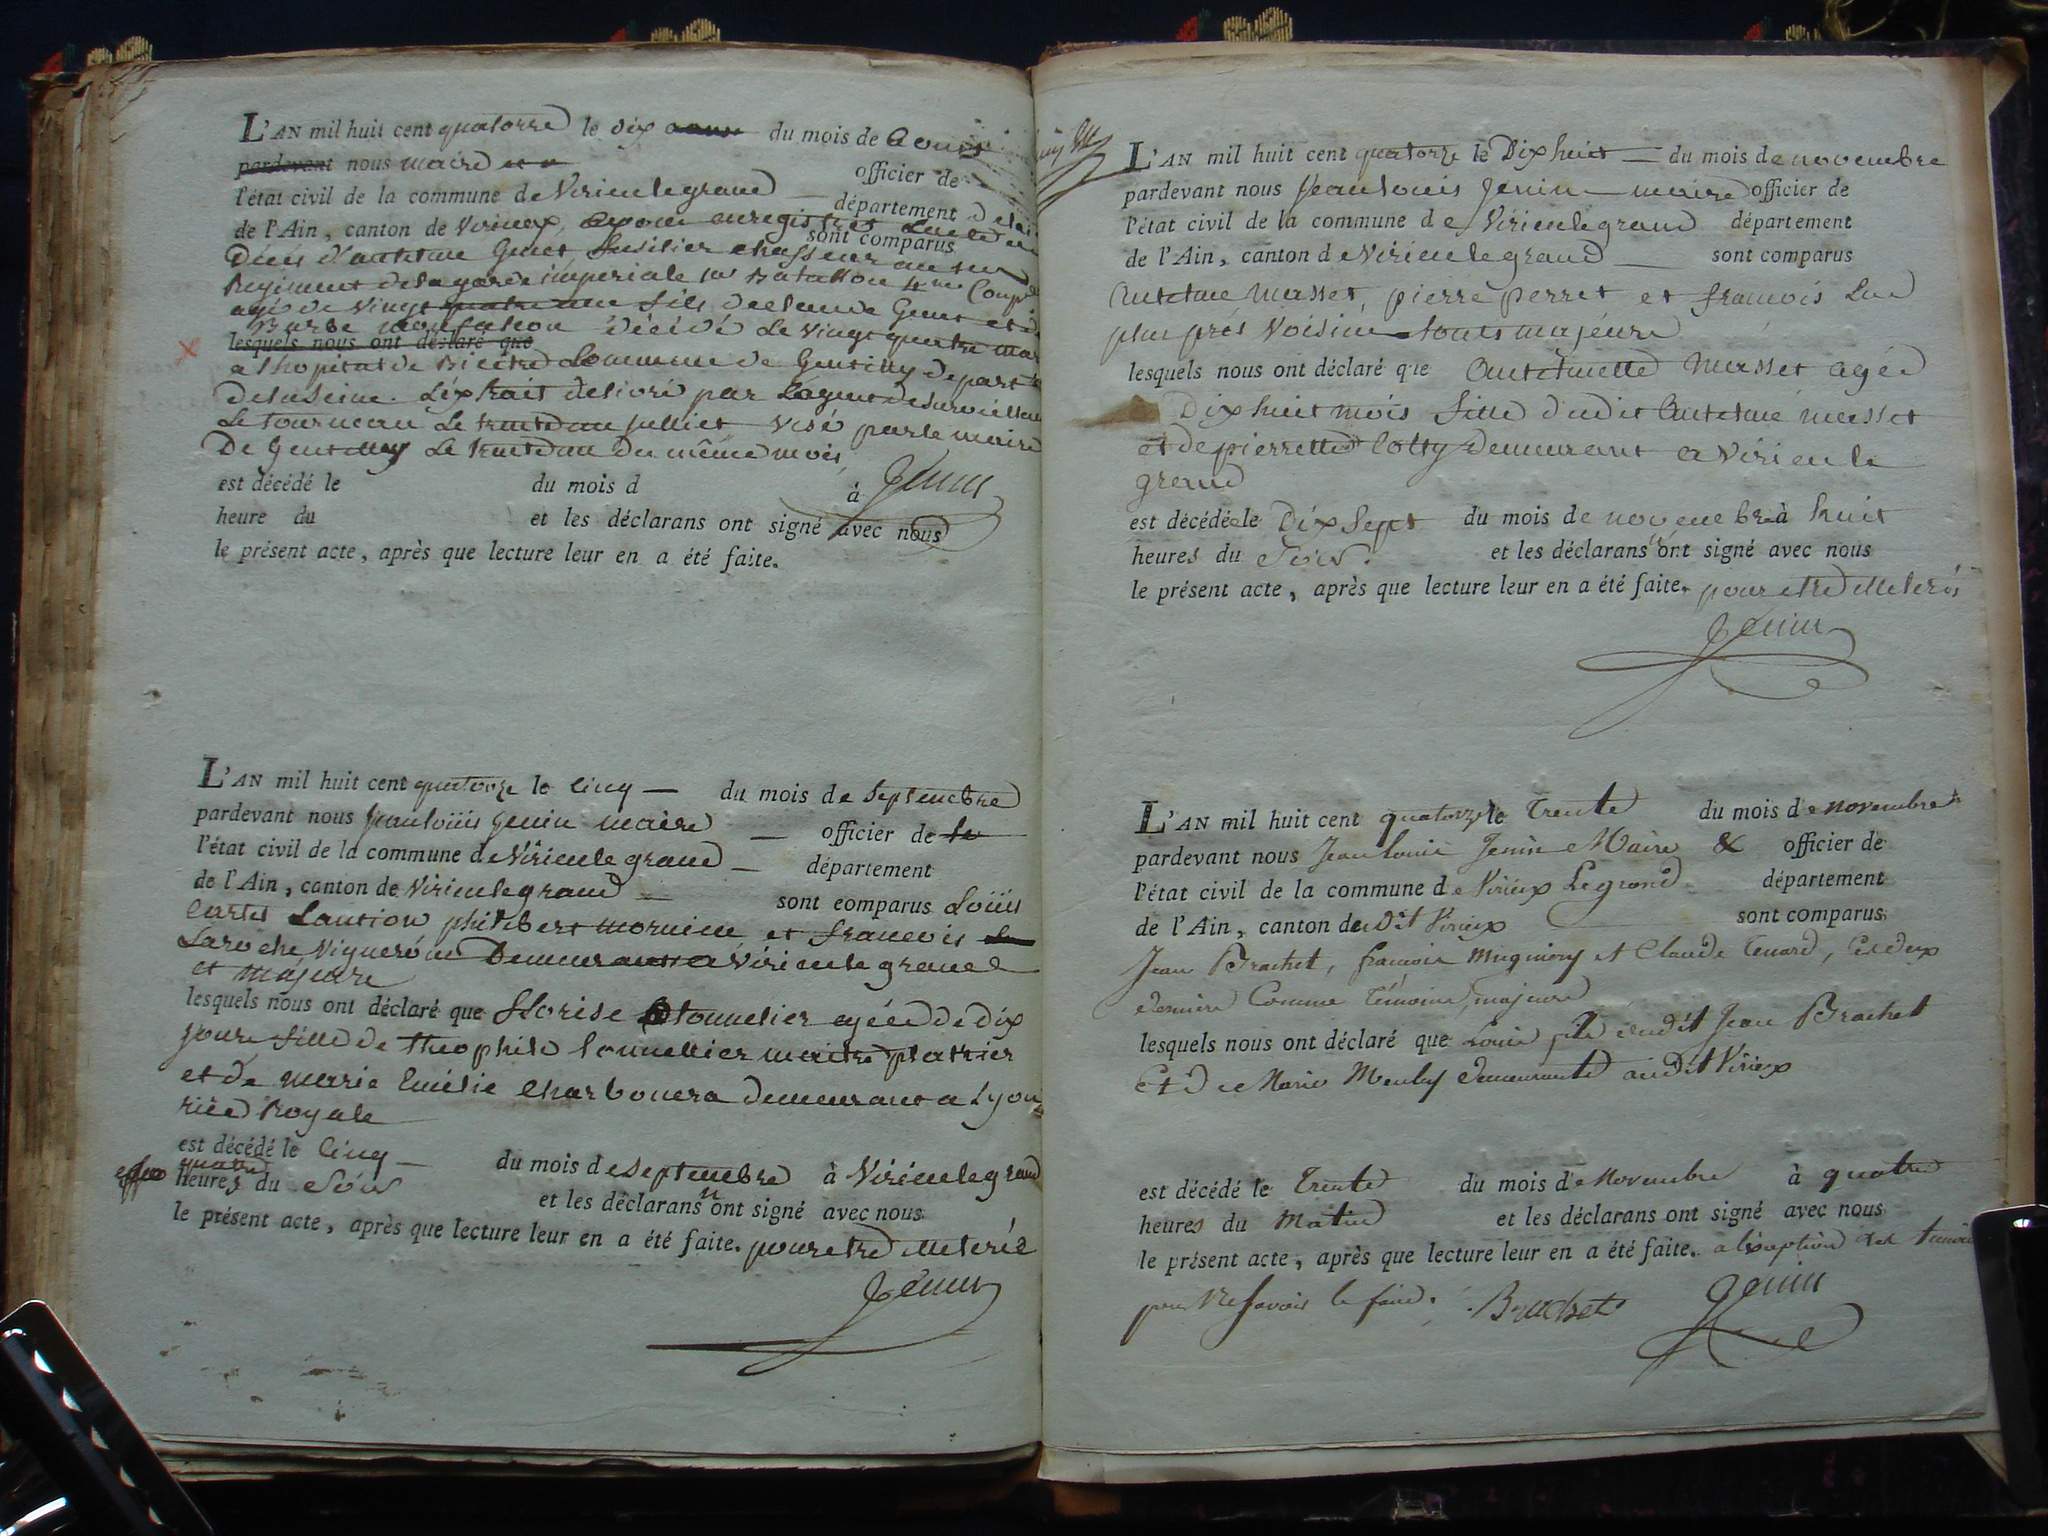 L'AN mil huit cent quatorze le dix du mois de aoust
pardevant nous maire officier de
l'état civil de la commune de Virieu le grand département
de l'Ain, canton de Virieux, avons enregistré
sont comparus
Décès d'antelme Genet fusilier chasseur au
Regiment de la garde imperiale 1er Bataillon 4me Comp
agé de Vingt fils de Claude Genet et
Barbe décédé le Vingt quatre mar
lesquels nous ont déclaré que
a l'hopital de Bicetre Commune de Gentilly depart
de la Seine. L'extrait delivré par L'agent de surveillan
Le tourneau Le trente un juillet visé par le maire
De Gentilly Le trente un du même mois
est décédé le du mois d à Genin
heure du et les déclarans ont signé avec nous
le présent acte, après que lecture leur en a été faite.
L'AN mil huit cent quatorze le cinq du mois de Septembre
pardevant nous jean louïs Genin maire officier de
l'état civil de la commune de Virieu le grand département
de l'Ain, canton de Virieu le grand sont comparus Loüis
philibert et francois
Laroche Vignerons Demeurant a Virieu le grand
et majeurs
lesquels nous ont déclaré que Florise tonnelier agée de dix
jours fille de theophile tonnellier maitre platrier
et de marie Emélie Charbonera demeurant a Lyon
rüe Royale
est décédé le cinq du mois de Septembre à Virieu le grand
quatre
heures du Soir et les déclarans n'ont signé avec nous
le présent acte, après que lecture leur en a été faite. pour etre illeteré
Genin
L'AN mil huit cent quatorze le Dix huit du mois de novembre
pardevant nous Jean louis Genin maire officier de
l'état civil de la commune de Virieu le grand département
de l'Ain, canton de Virieu le grand sont comparus
Antelme Masset, pierre perret et francois Luc
plus prés Voisins touts majeurs
lesquels nous ont déclaré que Antelmette Masset agée
Dix huit mois fille dudit Antelme masset
et de pierrette Cotty Demeurant a Virieu le
grand
est décédée le Dix Sept du mois de novembre à huit
heures du Soir. et les déclarans n'ont signé avec nous
le présent acte, après que lecture leur en a été faite. pour etre illeterés
Genin
L'AN mil huit cent quatorze le Trente du mois de novembre
pardevant nous Jean Louis Jenin Maire & officier de
l'état civil de la commune de Virieux Legrand département
de l'Ain, canton de Dit Virieux sont comparus
Jean Brachet, francois Mugniery et Claude Tenard, Cesdeux
derniers Comme Témoins, majeurs
lesquels nous ont déclaré que Louis fils dudit Jean Brachet
Et de Marie demeurante audit Virieux
est décédé le Trente du mois de Novembre à quatre
heures du Matin et les déclarans ont signé avec nous
le présent acte, après que lecture leur en a été faite. a l'exeption des temoins
pour ne savoir le faire. Brachet Genin